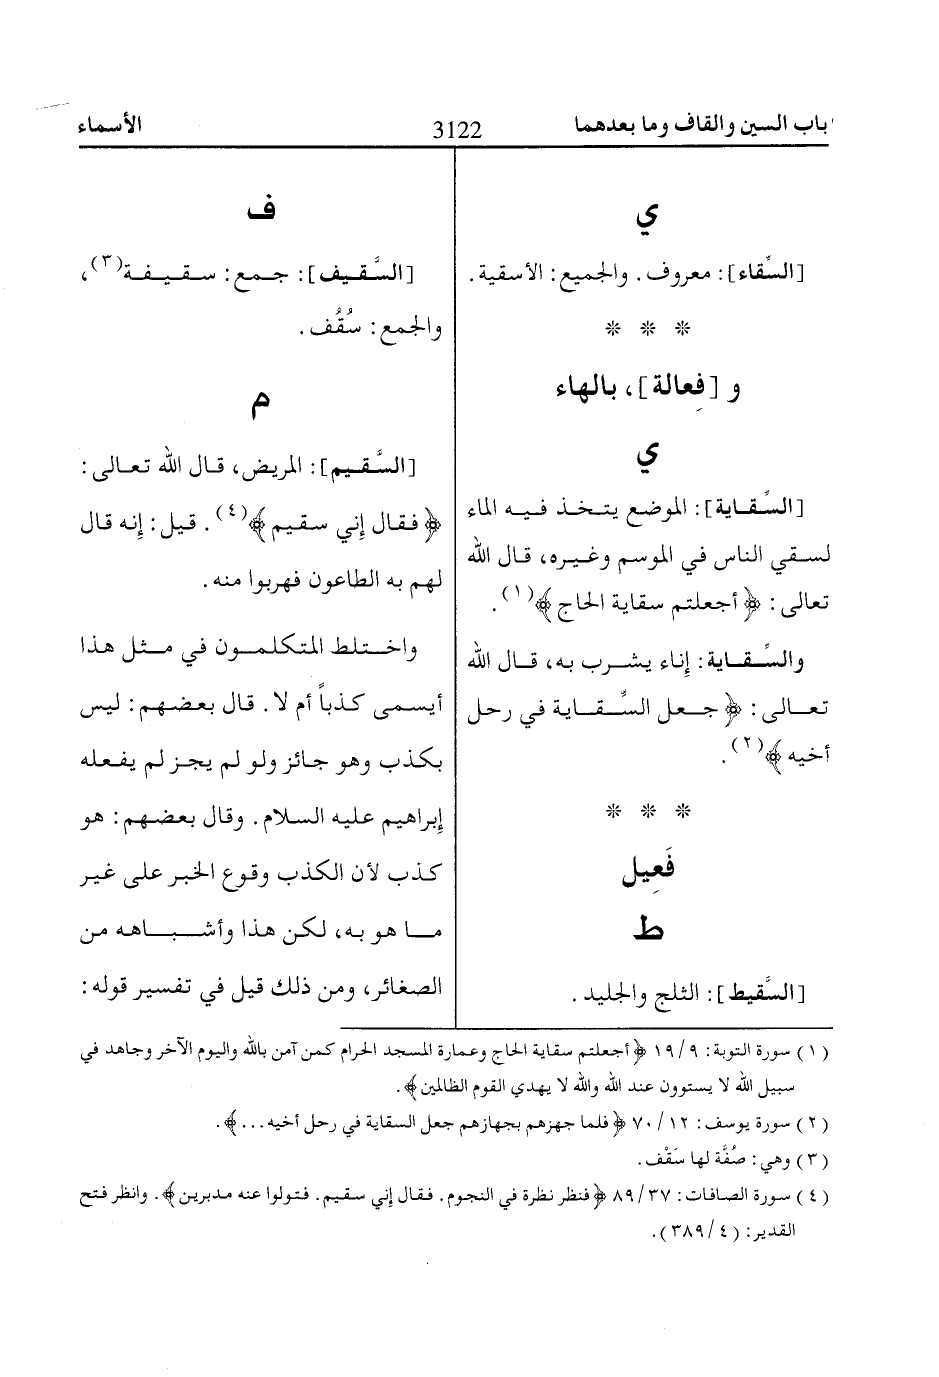 باب السين والقاف وما بعدهما
3122
الأسماء
ي
[السِّقاء]: معروف. والجميع: الأسقية.
* * *
و [فِعالة]، بالهاء
ي
[السِّقاية]: الموضع يتخذ فيه الماء
لسقي الناس في الموسم وغيره، قال الله
تعالى: ﴿أجعلتم سقاية الحاج﴾(١).
والسِّقاية: إناء يشرب به، قال الله
تعالى: ﴿جعل السِّقاية في رحل
أخيه﴾(٢).
* * *
فَعِيل
ط
[السَّقيط]: الثلج والجليد.
ف
[السَّقيف]: جمع: سقيفة(٣)،
والجمع: سُقُف.
م
[السَّقيم]: المريض، قال الله تعالى:
﴿فقال إني سقيم﴾(٤). قيل: إنه قال
لهم به الطاعون فهربوا منه.
واختلط المتكلمون في مثل هذا
أيسمى كذباً أم لا. قال بعضهم: ليس
بكذب وهو جائز ولو لم يجز لم يفعله
إبراهيم عليه السلام. وقال بعضهم: هو
كذب لأن الكذب وقوع الخبر على غير
ما هو به، لكن هذا وأشباهه من
الصغائر، ومن ذلك قيل في تفسير قوله:
(١) سورة التوبة: ٩/ ١٩ ﴿أجعلتم سقاية الحاج وعمارة المسجد الحرام كمن آمن بالله واليوم الآخر وجاهد في
سبيل الله لا يستوون عند الله والله لا يهدي القوم الظالمين﴾.
(٢) سورة يوسف: ١٢/ ٧٠ ﴿فلما جهزهم بجهازهم جعل السقاية في رحل أخيه...﴾.
(٣) وهي: صُفَّة لها سَقْف.
(٤) سورة الصافات: ٣٧/ ٨٩ ﴿فنظر نظرة في النجوم. فقال إني سقيم. فتولوا عنه مدبرين﴾. وانظر فتح
القدير: (٤/ ٣٨٩).